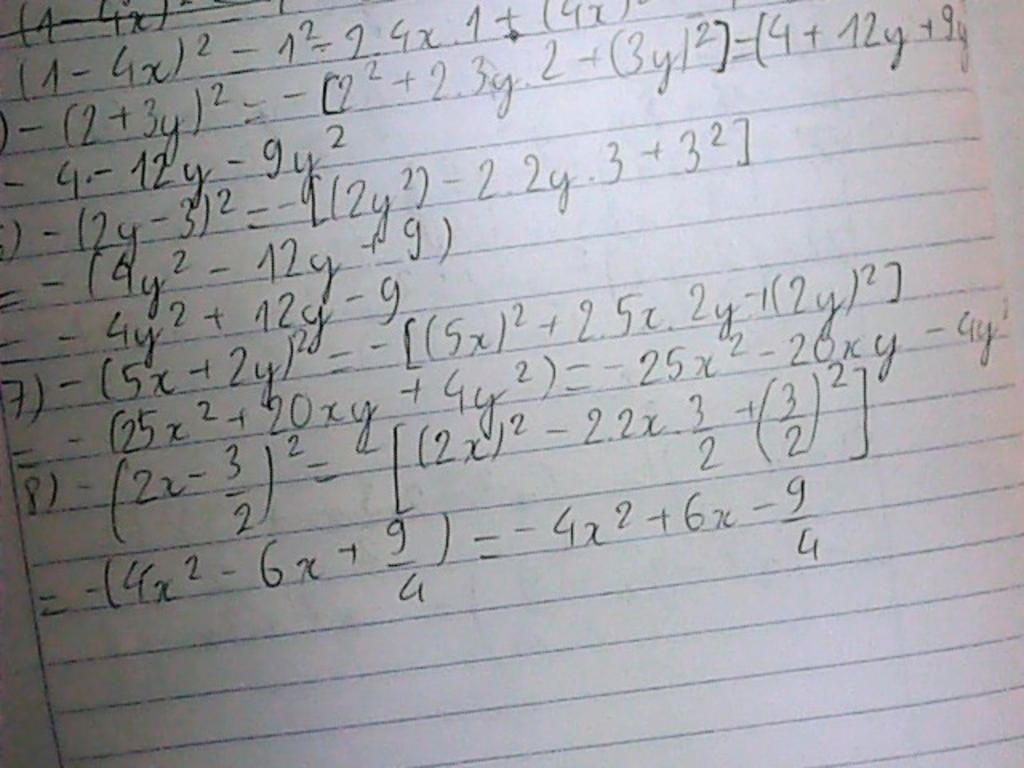 (1 - 4x)²
(1 - 4x)² - 1² - 2.4x.1 + (4x)
) - (2 + 3y)² = - [2² + 2.3y.2 + (3y)²] = (4 + 12y + 9y
- 4 - 12y - 9y²
) - (2y - 3)² = - [(2y²) - 2.2y.3 + 3²]
= - (4y² - 12y + 9)
= - 4y² + 12y - 9
7) - (5x + 2y)² = - [(5x)² + 2.5x.2y + (2y)²]
= - (25x² + 20xy + 4y²) = - 25x² - 20xy - 4y²
8) - (2x - 3/2)² = - [(2x)² - 2.2x.3/2 + (3/2)²]
= - (4x² - 6x + 9/4) = - 4x² + 6x - 9/4